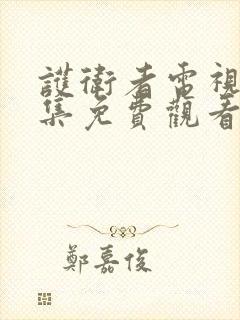 護衛者電視
集免費觀看
鄭嘉俊